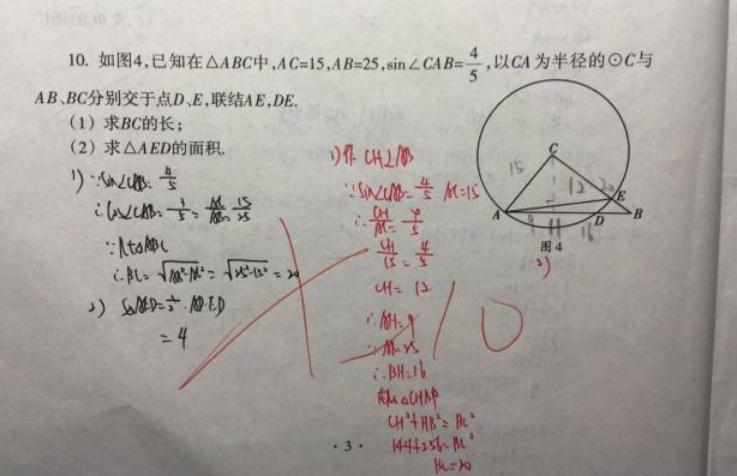 10. 如图4,已知在△ABC中,AC=15,AB=25,sin∠CAB=4/5,以CA为半径的⊙C与
AB、BC分别交于点D、E,联结AE,DE.
(1) 求BC的长;
(2) 求△AED的面积.
1) ∵sin∠CAB=4/5
∴cos∠CAB=3/5=AC/AB=15/25
∴BC=√AB²-AC²=√25²-15²=20
2) S△AED=1/2·AD·ED
=4
1)作 CH⊥AB
∵sin∠CAB=4/5 AC=15
∴CH/AC=4/5
CH/15=4/5
CH=12
∴AH=9
∵AB=25
∴BH=16
CH²+HB²=BC²
144+256=BC²
BC=20
C
15
12
20
E
A
D
B
9
H
16
图4
2)
0
·3·